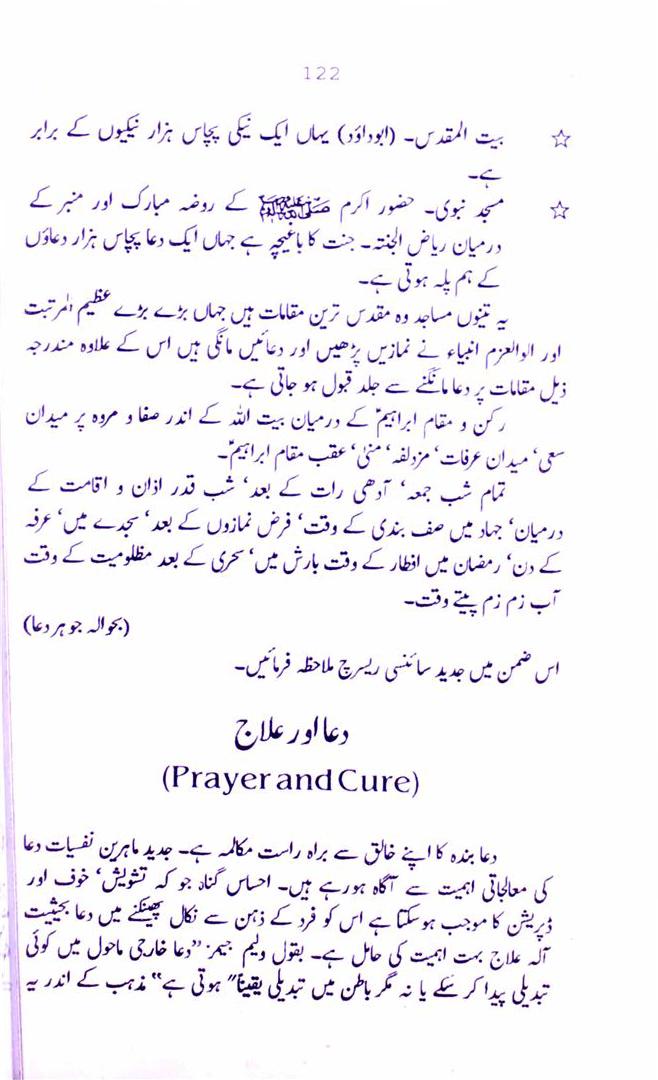 122
☆ بیت المقدس۔ (ابوداؤد) یہاں ایک نیکی پچاس ہزار نیکیوں کے برابر
ہے۔
☆ مسجد نبوی۔ حضور اکرم ﷺ کے روضہ مبارک اور منبر کے
درمیان ریاض الجنتہ۔ جنت کا باغیچہ ہے جہاں ایک دعا پچاس ہزار دعاؤں
کے ہم پلہ ہوتی ہے۔
یہ تینوں مساجد وہ مقدس ترین مقامات ہیں جہاں بڑے بڑے عظیم المرتبت
اور الوالعزم انبیاء نے نمازیں پڑھیں اور دعائیں مانگی ہیں اس کے علاوہ مندرجہ
ذیل مقامات پر دعا مانگنے سے جلد قبول ہو جاتی ہے۔
رکن و مقام ابراہیمؑ کے درمیان بیت اللہ کے اندر صفا و مروہ پر میدان
سعی‘ میدان عرفات‘ مزدلفہ‘ منیٰ‘ عقب مقام ابراہیمؑ۔
تمام شب جمعہ‘ آدھی رات کے بعد‘ شب قدر اذان و اقامت کے
درمیان‘ جہاد میں صف بندی کے وقت‘ فرض نمازوں کے بعد‘ سجدے میں‘ عرفہ
کے دن‘ رمضان میں افطار کے وقت بارش میں‘ سحری کے بعد مظلومیت کے وقت
آب زم زم پیتے وقت۔
(بحوالہ جوہر دعا)
اس ضمن میں جدید سائنسی ریسرچ ملاحظہ فرمائیں۔
دعا اور علاج
(Prayer and Cure)
دعا بندہ کا اپنے خالق سے براہ راست مکالمہ ہے۔ جدید ماہرین نفسیات دعا
کی معالجاتی اہمیت سے آگاہ ہورہے ہیں۔ احساس گناہ جو کہ تشویش‘ خوف اور
ڈپریشن کا موجب ہوسکتا ہے اس کو فرد کے ذہن سے نکال پھینکنے میں دعا بحیثیت
آلہ علاج بہت اہمیت کی حامل ہے۔ بقول ولیم جیمز ”دعا خارجی ماحول میں کوئی
تبدیلی پیدا کر سکے یا نہ مگر باطن میں تبدیلی یقیناً ہوتی ہے“ مذہب کے اندر یہ